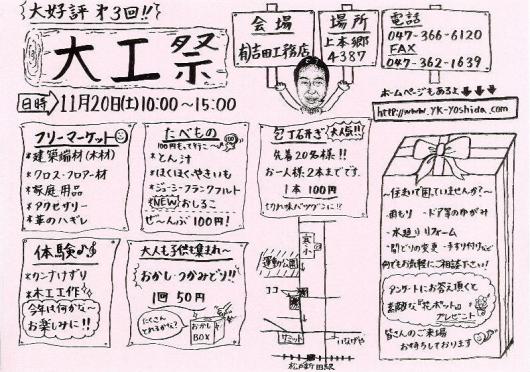 大好評 第3回!!
大工祭
会場
(有)吉田工務店
場所
上本郷
4-387
電話
047-366-6120
FAX
047-362-1639
日時 11月20日(土)10:00～15:00
ホームページもあるよ
http://www.yk-yoshida.com
フリーマーケット
*建築端材(木材)
*クロス・フロアー材
*家庭用品
*アクセサリー
*革のハギレ
たべもの
100円もって行こ～
*とん汁
*ほくほくやきいも
*ジューシーフランクフルト
NEW おしるこ
ぜ～んぶ100円!
包丁研ぎ 大人気!!
先着20名様!!
お一人様2本までです。
1本 100円
切れ味バツグンに!!
体験♪
*カンナけずり
*木工工作
今年は何かな～
お楽しみに!!
大人も子供も集まれ～
おかし・つかみどり!!
1回 50円
たくさん
とれるかな?
おかし
BOX
寒
小
運動公園
ココ
サミット
いなげや
松戸新田駅
～住まいで困っていませんか?～
・雨もり ・ドア等のゆがみ
・水廻りリフォーム
・間どりの変更・手すり付けなど
何でもお気軽にご相談下さい!
アンケートにお答え頂くと
素敵な『花ポット』
プレゼント
皆さんのご来場
お待ちしております